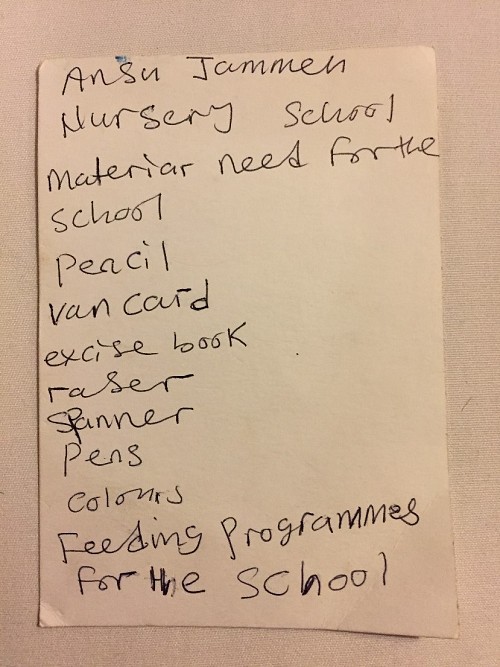 Ansu Jammeh
Nursery School
Materiar need for the
school
Pencil
van card
excise book
raser
spanner
Pens
colours
Feeding Programmes
for the School